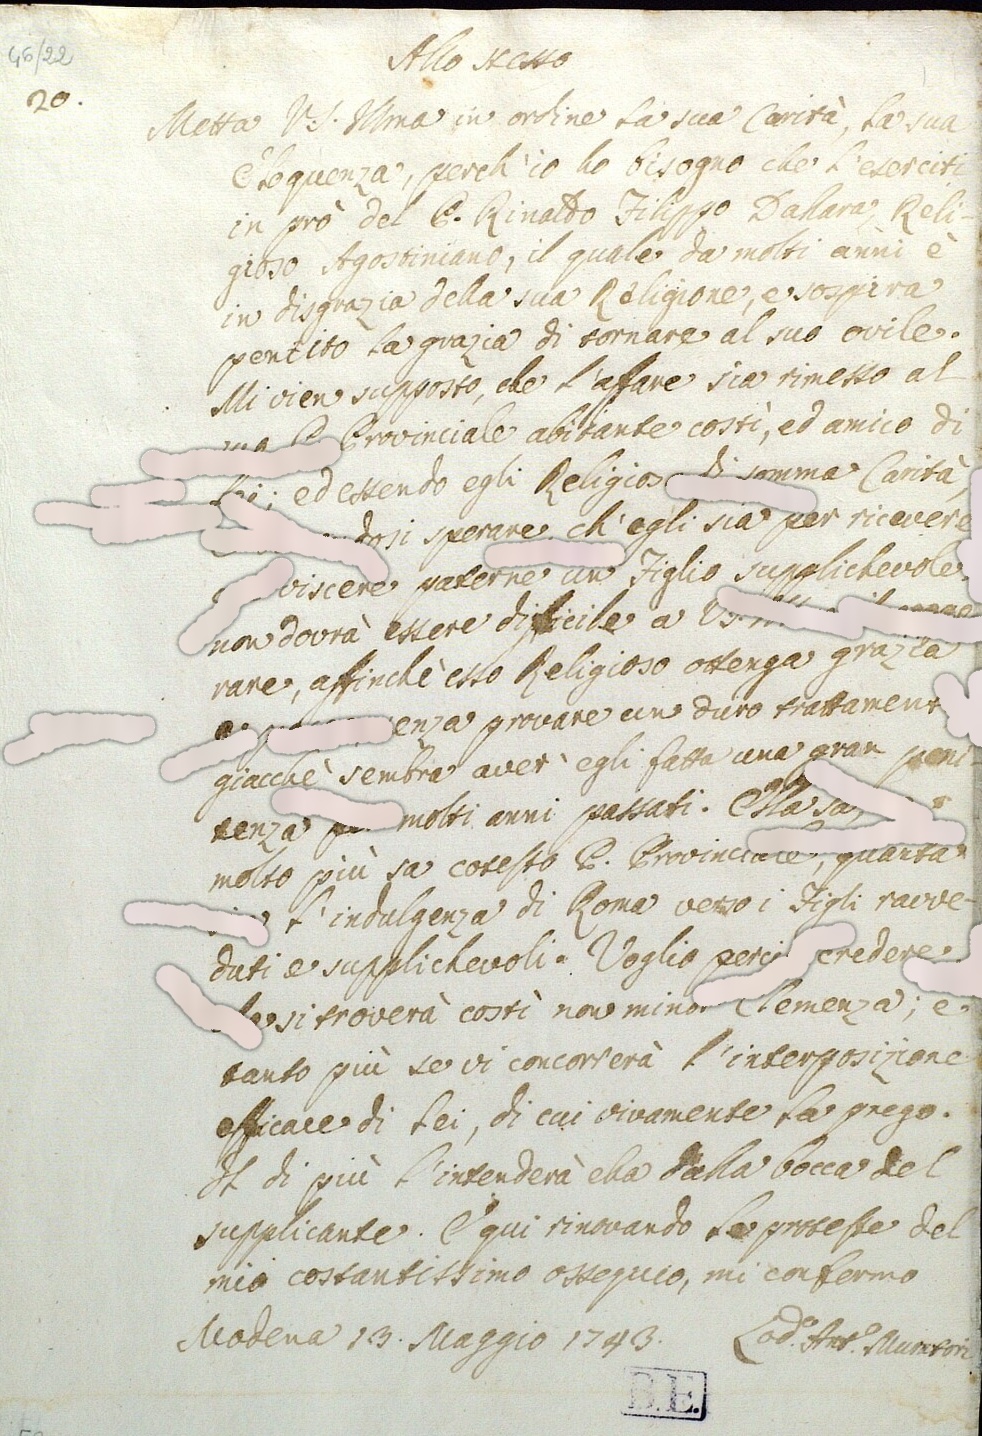 46/22
Allo stesso
20.
Metta V. S. Illma in ordine la sua Carità, la sua
Eloquenza, perch'io ho bisogno che l'eserciti
in prò del P. Rinaldo Filippo Dallara, Reli-
gioso Agostiniano, il quale da molti anni è
in disgrazia della sua Religione, e sospira
pentito la grazia di tornare al suo ovile.
Mi vien supposto, che l'affare sia rimesso al
P. Provinciale abitante costì, ed amico di
lei; ed essendo egli Religioso di somma Carità,
dosi sperare, ch'egli sia per ricevere
viscere paterne un Figlio supplichevole
non dovrà essere difficile a
rare, affinchè esso Religioso ottenga grazia
enza provare un duro trattament
giacchè sembra aver egli fatta una gran peni-
tenza molti anni passati. Ella sa,
molto più sa cotesto P. Provinciale, quanta
l'indulgenza di Roma verso i Figli ravve-
duti e supplichevoli. Voglio perciò credere
che si troverà costì non minor Clemenza; e
tanto più se vi concorrerà l'interposizione
efficace di Lei, di cui vivamente la prego.
Il di più l'intenderà ella dalla bocca del
supplicante. E qui rinovando le proteste del
mio costantissimo ossequio, mi confermo
Modena 13. Maggio 1743. Lod.º Ant.º Muratori
B.E.